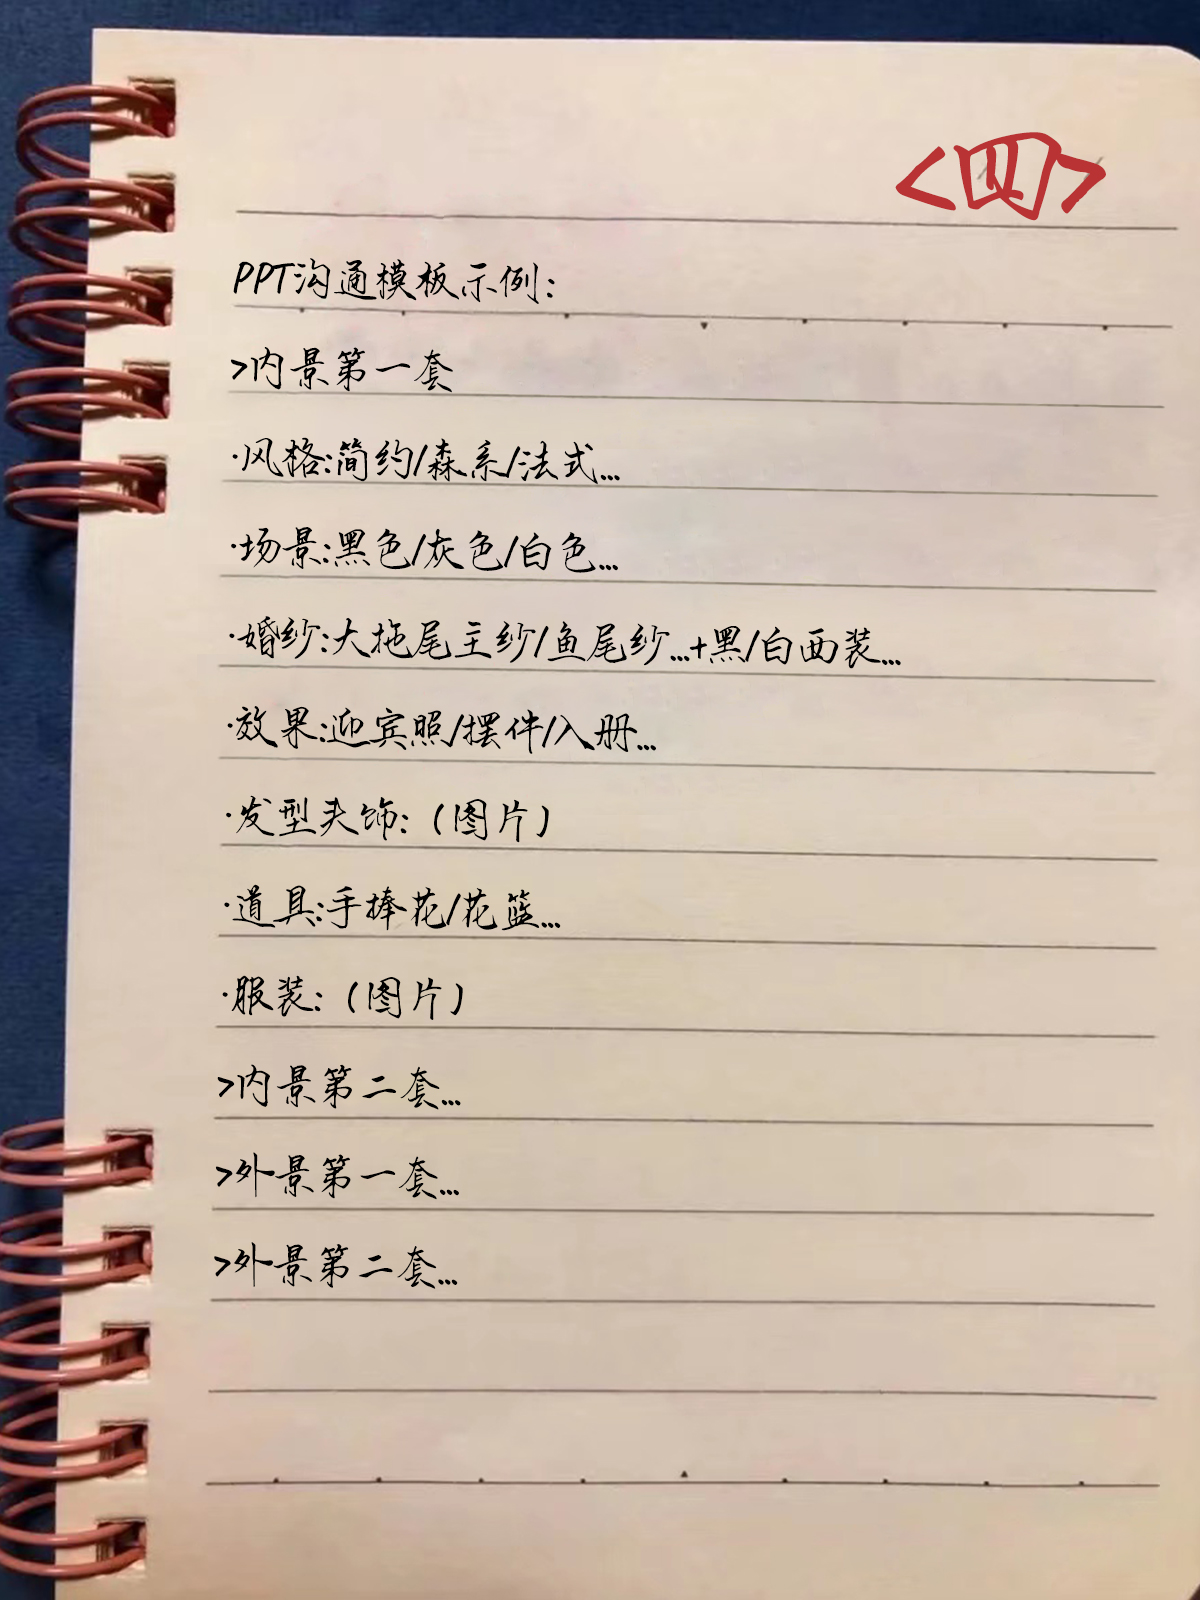 <四>
PPT沟通模板示例:
>内景第一套
·风格:简约/森系/法式...
·场景:黑色/灰色/白色...
·婚纱:大拖尾主纱/鱼尾纱...+黑/白西装...
·效果:迎宾照/摆件/入册...
·发型夹饰:(图片)
·道具:手捧花/花篮...
·服装:(图片)
>内景第二套...
>外景第一套...
>外景第二套...